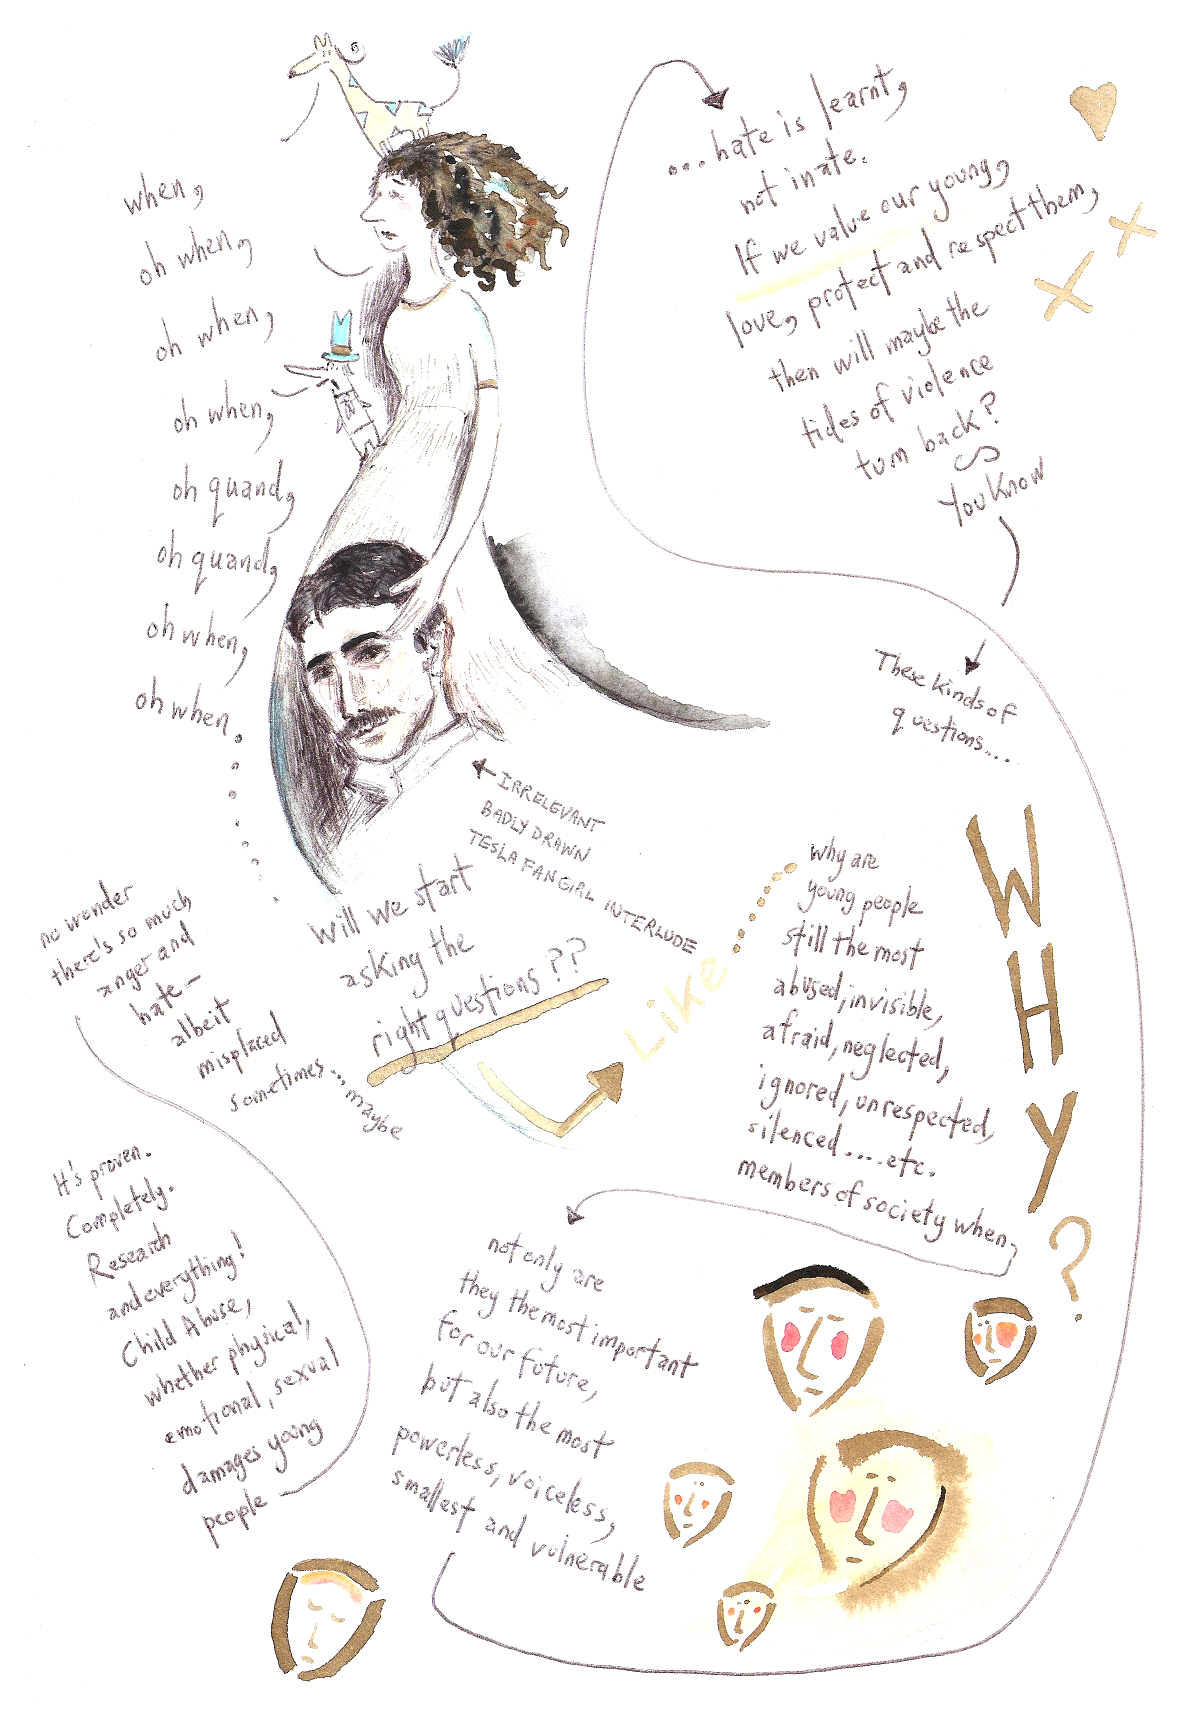 when,
oh when,
oh when,
oh when,
oh quand,
oh quand,
oh when,
oh when.
will we start
asking the
right questions??
IRRELEVANT
BADLY DRAWN
TESLA FAN GIRL INTERLUDE
Like
why are
young people
still the most
abused, invisible,
afraid, neglected,
ignored, unrespected,
silenced....etc.
members of society when,
WHY?
not only are
they the most important
for our future,
but also the most
powerless, voiceless,
smallest and vulnerable
...hate is learnt,
not inate.
If we value our young,
love, protect and respect them,
then will maybe the
tides of violence
turn back?
You Know
These kinds of
questions....
It's proven.
Completely.
Research
and everything!
Child Abuse,
whether physical,
emotional, sexual
damages young
people
no wonder
there's so much
anger and
hate-
albeit
misplaced
sometimes... maybe